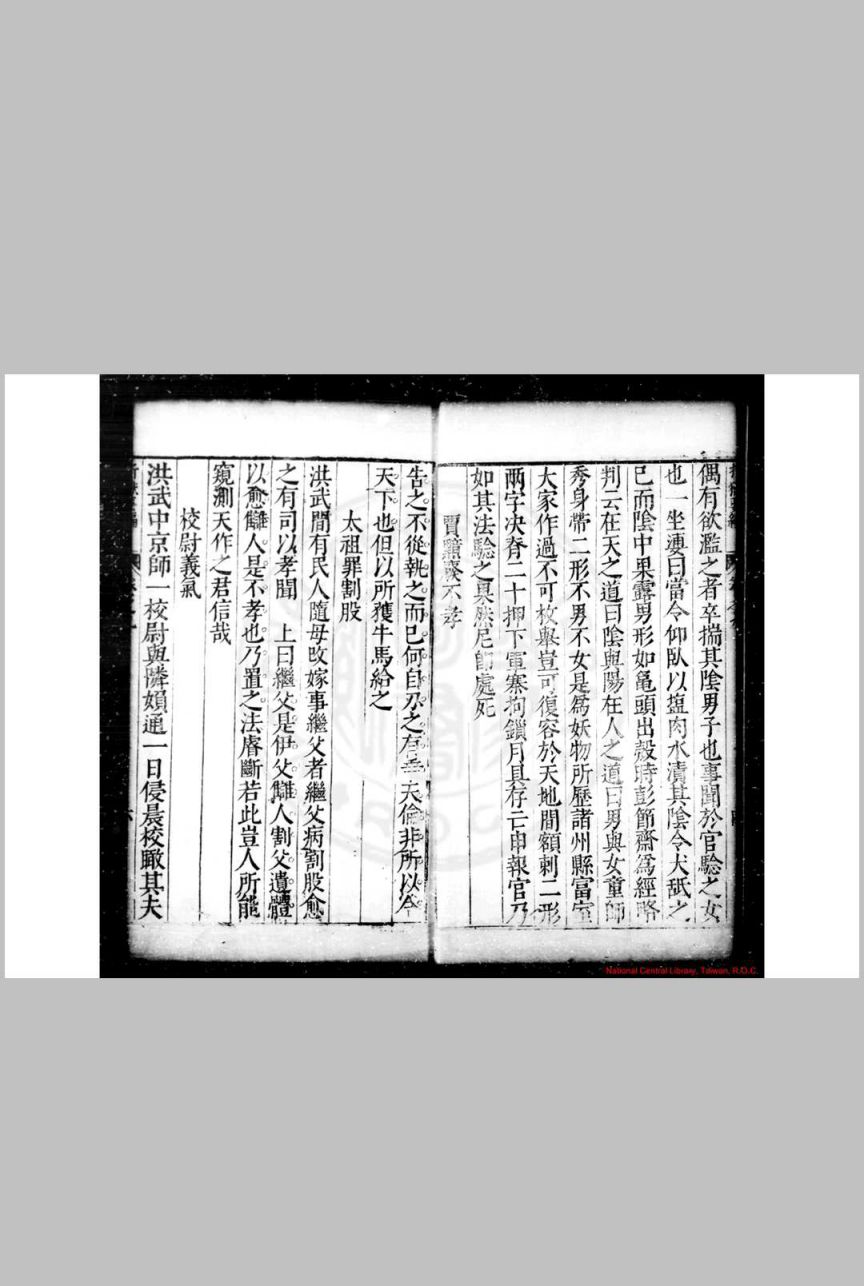 偶有欲濫之者卒揣其陰男子也事聞於官驗之女
也一坐婆曰當令仰臥以塩肉水漬其陰令犬舐之
已而陰中果露男形如龜頭出殼時彭節齋為經略
判云在天之道曰陰與陽在人之道曰男與女童師
秀身帶二形不男不女是為妖物所歷諸州縣富室
大家作過不可枚舉豈可復容於天地間額刺二形
兩字決脊二十押下軍寨拘鎖月具存亡申報官乃
如其法驗之果然尼師處死
賈 不孝
告之不從執之而已何自刃之有 夫倫非所以令
天下也但以所獲牛馬給之
太祖罪割股
洪武間有民人隨母改嫁事繼父者繼父病割股愈
之有司以孝聞 上曰繼父是伊父讎人割父遺體
以愈讎人是不孝也乃置之法睿斷若此豈人所能
窺測天作之君信哉
校尉義氣
洪武中京師一校尉與隣婦通一日侵晨校瞰其夫
National Central Library, Taiwan, R.O.C.